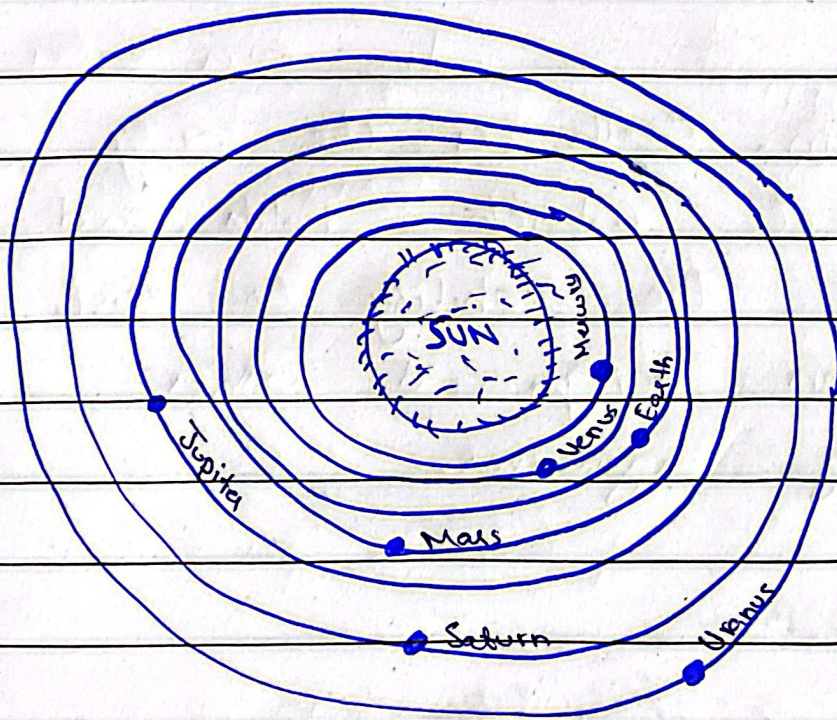 SUN
Mercury
Venus
Earth
Mars
Jupiter
Saturn
Uranus